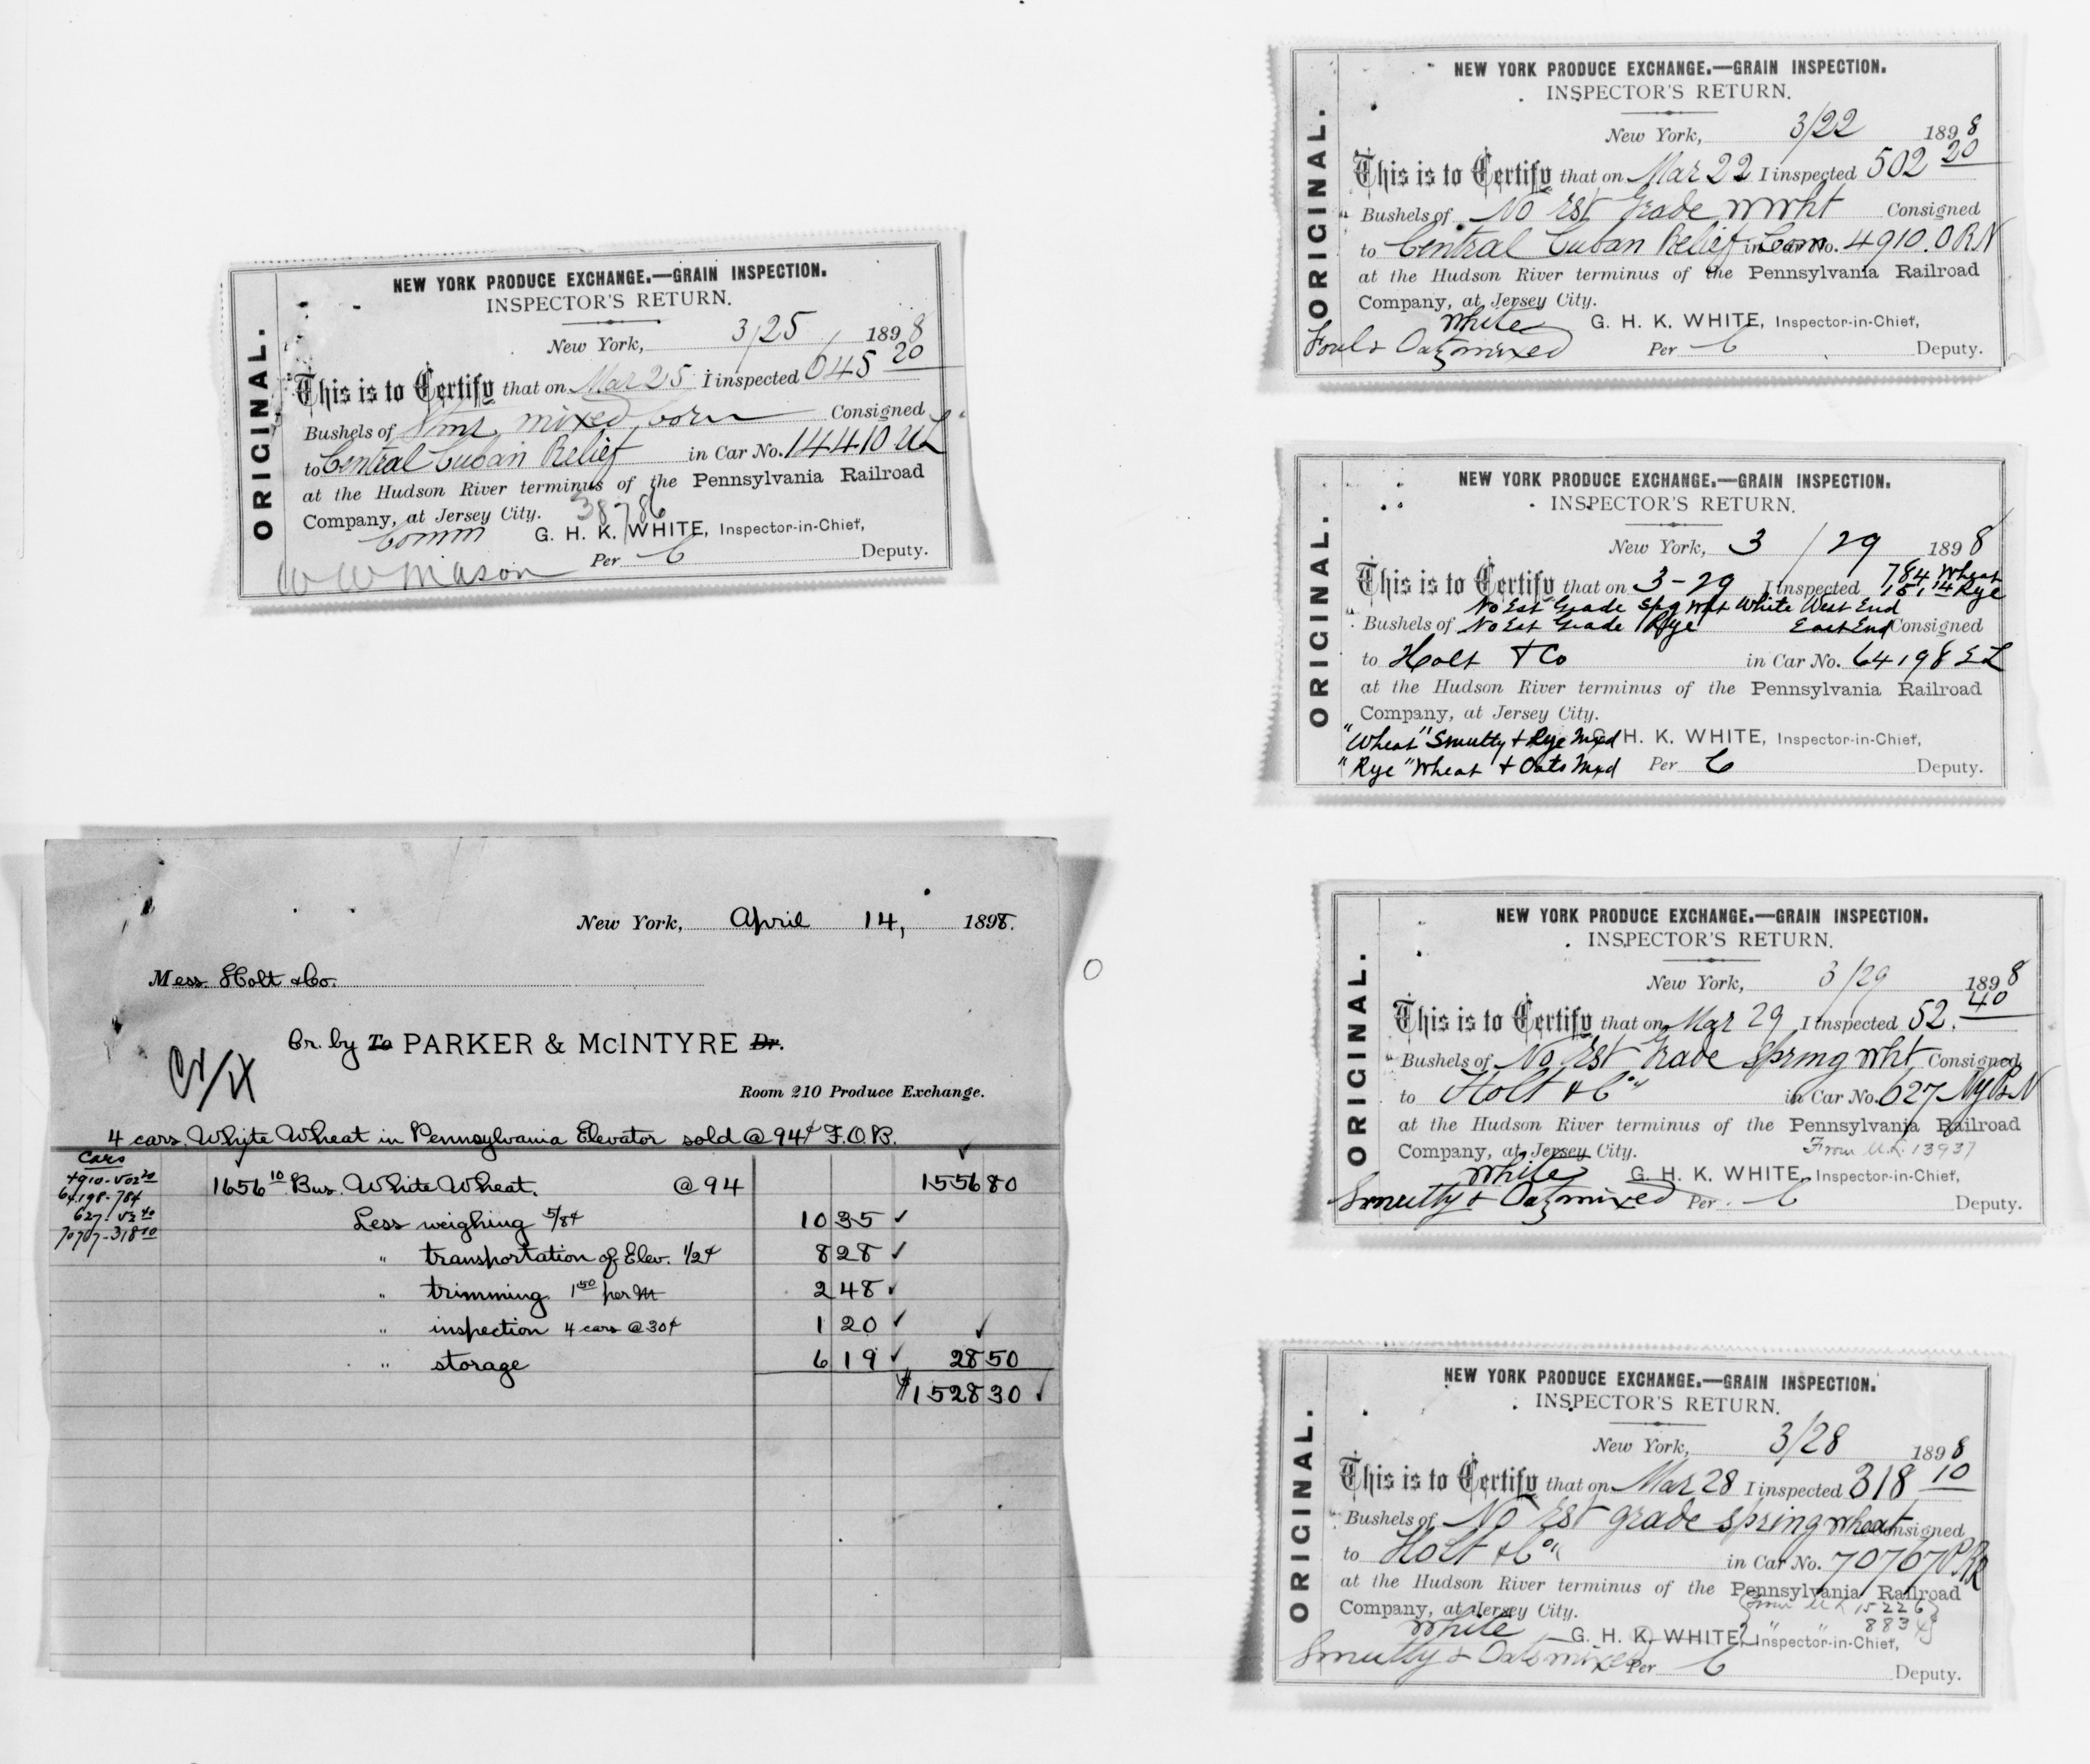 ORIGINAL.
NEW YORK PRODUCE EXCHANGE.—GRAIN INSPECTION.
INSPECTOR'S RETURN.
New York, 3/25 1898
This is to Certify that on Mar 25 I inspected 645 20
Bushels of mixed corn Consigned
to Central Cuban Relief in Car No. 14410 UL
at the Hudson River terminus of the Pennsylvania Railroad
Company, at Jersey City. 38786
Comm G. H. K. WHITE, Inspector-in-Chief,
W W Mason Per C Deputy.
New York, April 14, 1898.
Mess. Holt & Co.
Cr. by To PARKER & McINTYRE Dr.
Room 210 Produce Exchange.
4 cars. Whyte Wheat in Pennsylvania Elevator sold @ 94¢ F.O.B.
Cars
4910-502 20
64198-784
627-52 40
70767-318 10
1656 10 Bus. White Wheat. @ 94 1556 80
Less weighing 5/8¢ 10 35 ✓
" transportation of Elev. 1/2¢ 8 28 ✓
" trimming 1 50 per M 2 48 ✓
" inspection 4 cars @ 30¢ 1 20 ✓
" storage 6 19 ✓ 28 50
$1528 30 ✓
ORIGINAL.
NEW YORK PRODUCE EXCHANGE.—GRAIN INSPECTION.
INSPECTOR'S RETURN.
New York, 3/22 1898
This is to Certify that on Mar 22 I inspected 502 20
Bushels of No Est Grade Wwht Consigned
to Central Cuban Relief Com in Car No. 4910. ORN
at the Hudson River terminus of the Pennsylvania Railroad
Company, at Jersey City.
White G. H. K. WHITE, Inspector-in-Chief,
Foul & Oats mixed Per C Deputy.
ORIGINAL.
NEW YORK PRODUCE EXCHANGE.—GRAIN INSPECTION.
INSPECTOR'S RETURN.
New York, 3/29 1898
784 Wheat
This is to Certify that on 3-29 I inspected 151,14 Rye
No Est Grade Spg Wht White West End
Bushels of No Est Grade Rye East End Consigned
to Holt & Co in Car No. 64198 EL
at the Hudson River terminus of the Pennsylvania Railroad
Company, at Jersey City.
"Wheat" Smutty & Rye Mxd G. H. K. WHITE, Inspector-in-Chief,
"Rye" Wheat & Oats Mxd Per C Deputy.
ORIGINAL.
NEW YORK PRODUCE EXCHANGE.—GRAIN INSPECTION.
INSPECTOR'S RETURN.
New York, 3/29 1898
This is to Certify that on Mar 29 I inspected 52. 40
Bushels of No Est Grade Spring Wht Consigned
to Holt & Co in Car No. 627 NyPN
at the Hudson River terminus of the Pennsylvania Railroad
Company, at Jersey City. From U.L. 13937
White G. H. K. WHITE, Inspector-in-Chief,
Smutty & Oats mixed Per C Deputy.
ORIGINAL.
NEW YORK PRODUCE EXCHANGE.—GRAIN INSPECTION.
INSPECTOR'S RETURN.
New York, 3/28 1898
This is to Certify that on Mar 28 I inspected 318 10
Bushels of No Est grade spring wheat Consigned
to Holt & Co in Car No. 70767 PRR
at the Hudson River terminus of the Pennsylvania Railroad
Company, at Jersey City. From UL 15226
8834
White G. H. K. WHITE, Inspector-in-Chief,
Smutty & Oats mixed Per C Deputy.